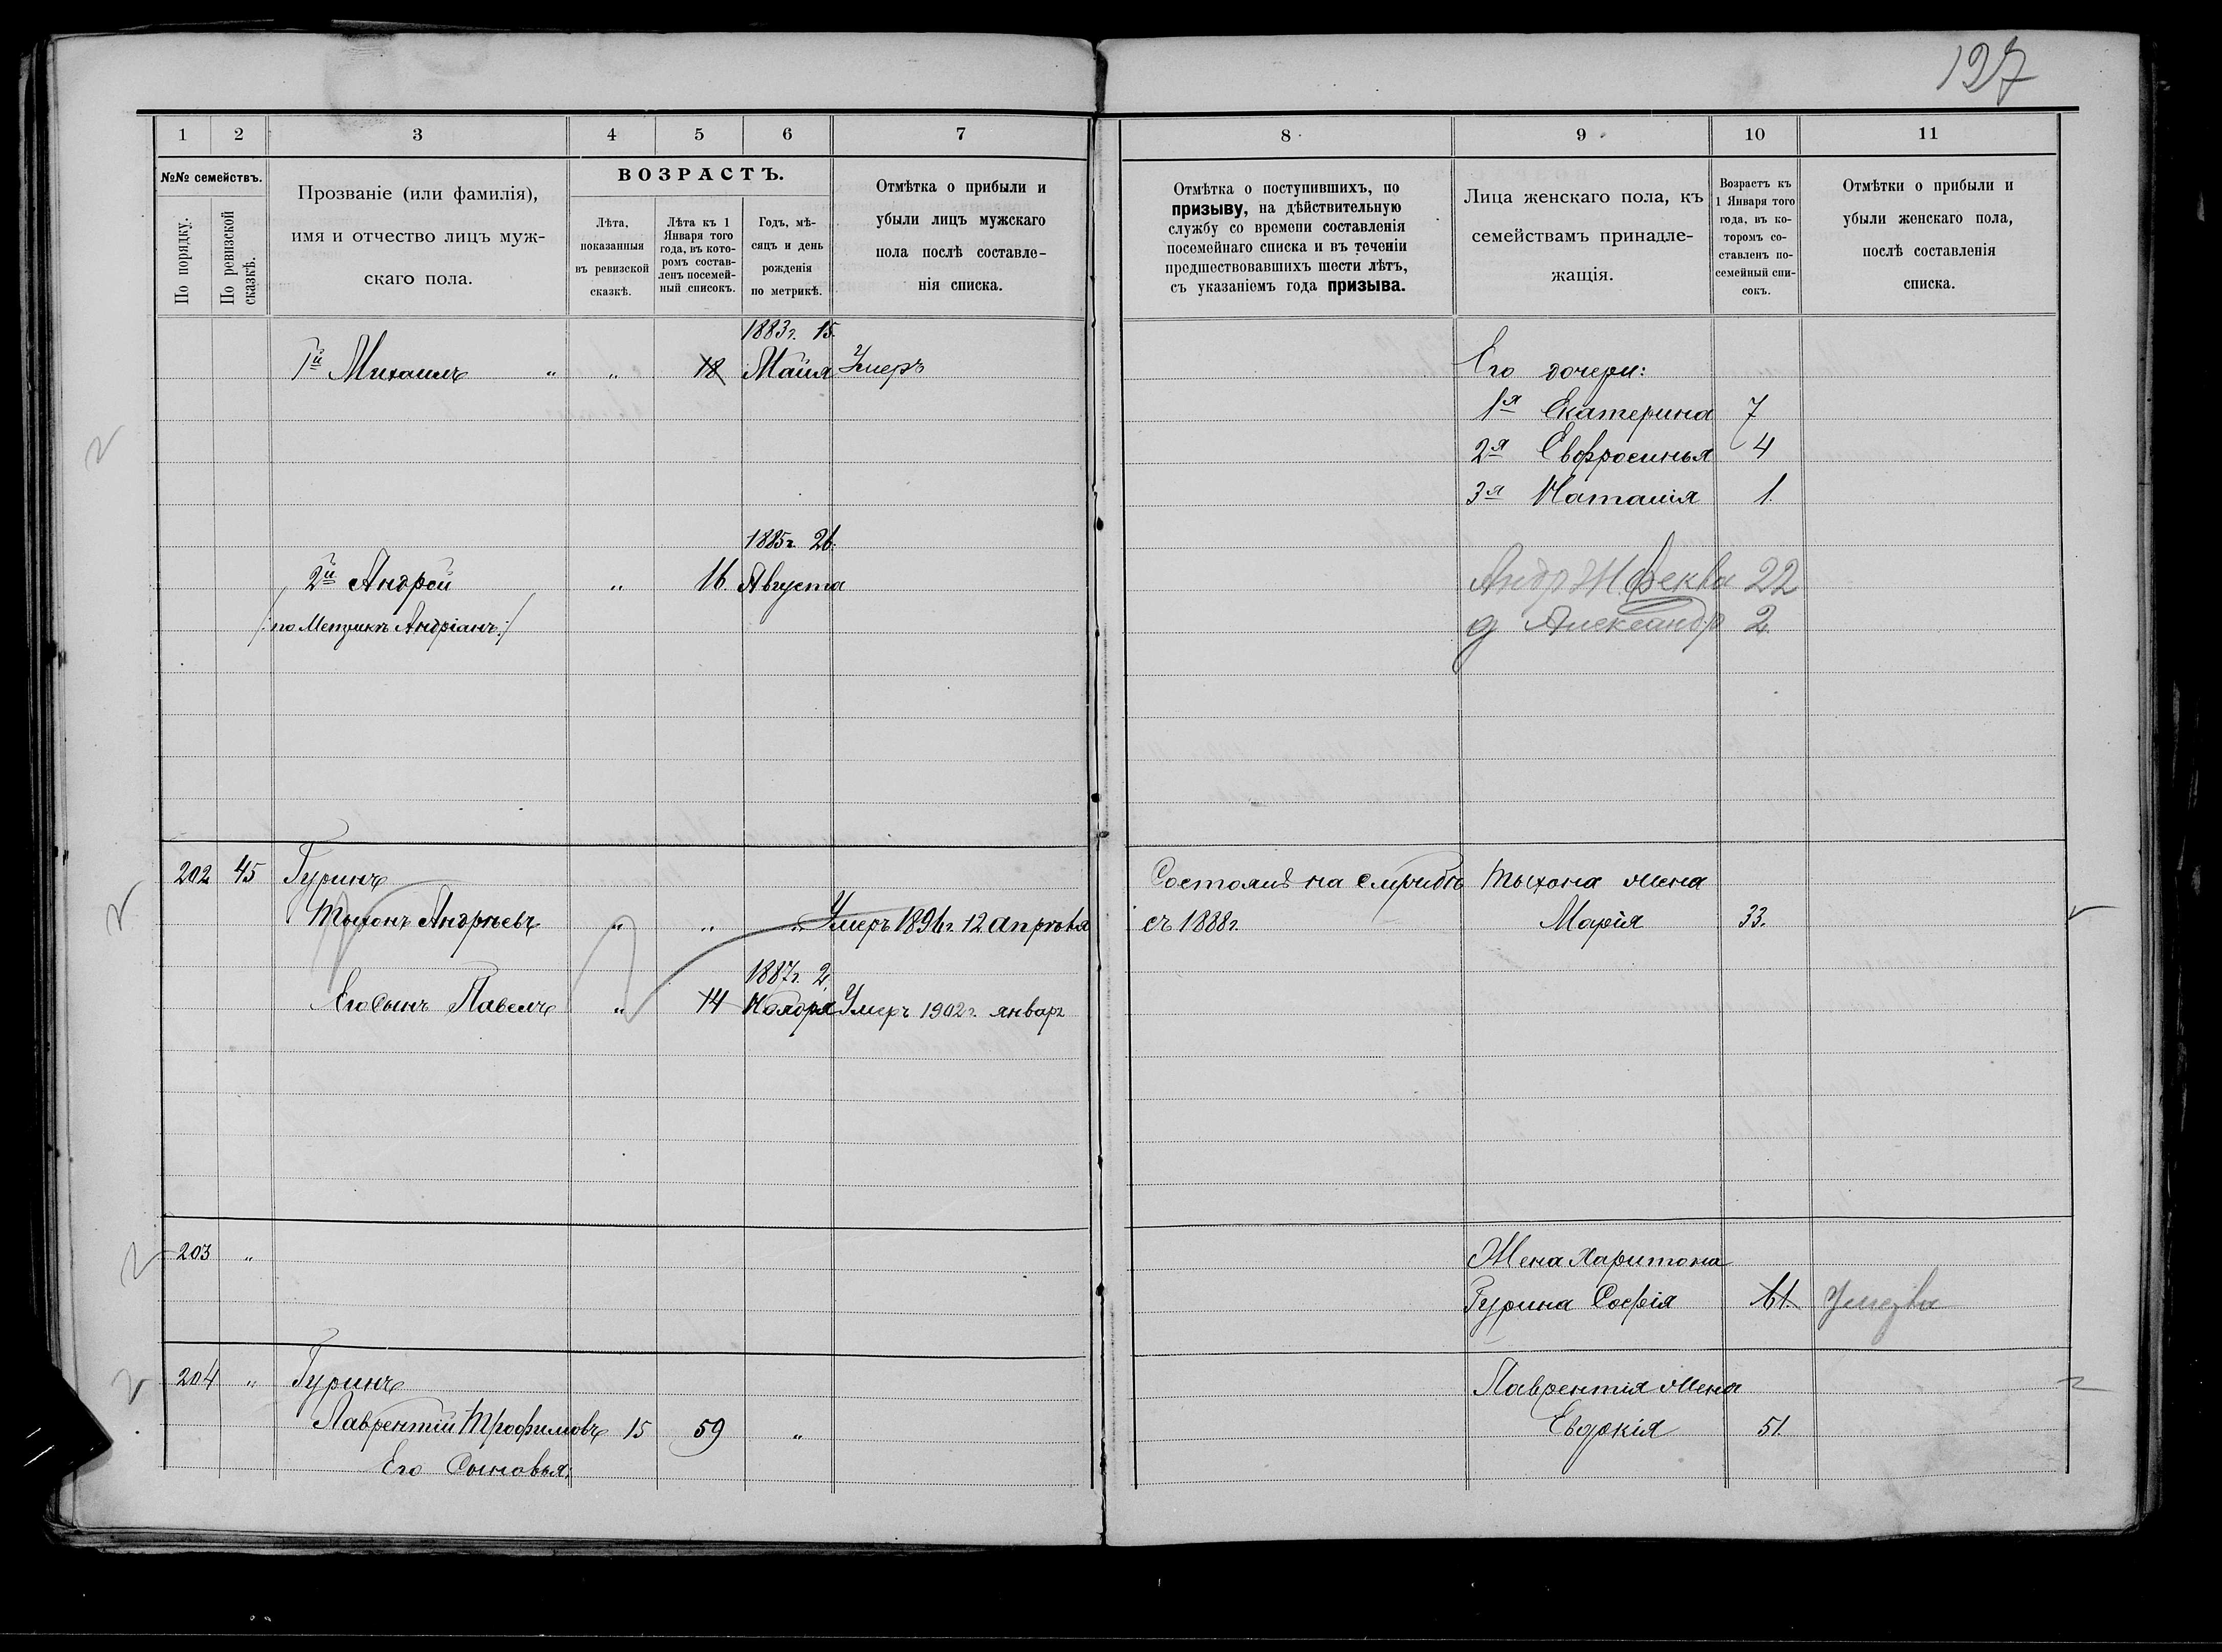 127
1 2 3 4 5 6 7
№№ семействъ.
По порядку.
По ревизской сказкѣ.
Прозваніе (или фамилія),
имя и отчество лицъ муж-
скаго пола.
ВОЗРАСТЪ.
Лѣта,
показанныя
въ ревизской
сказкѣ.
Лѣта къ 1
Января того
года, въ кото-
ромъ состав-
ленъ посемей-
ный списокъ.
Годъ, мѣ-
сяцъ и день
рожденія
по метрикѣ.
Отмѣтка о прибыли и
убыли лицъ мужскаго
пола послѣ составле-
нія списка.
1883г. 15.
1й Михаилъ " " 18 Маия Умеръ
1885г. 26.
2й Андрей " 16. Августа
/:по Метрикѣ Андріанъ:/
202 45 Гуринъ
Тихонъ Андреевъ " " " Умеръ 1896г. 12 апрѣля
1887г. 2
Его Сынъ Павелъ " 14 Ноября Умеръ 1902г. январ
203 "
204 " Гуринъ
Лаврентій Трофимовъ 15 59 "
Его Сыновья:
8 9 10 11
Отмѣтка о поступившихъ, по
призыву, на дѣйствительную
службу со времени составленія
посемейнаго списка и въ теченіи
предшествовавшихъ шести лѣтъ,
съ указаніемъ года призыва.
Лица женскаго пола, къ
семействамъ принадле-
жащія.
Возрастъ къ
1 Января того
года, въ ко-
торомъ со-
ставленъ по-
семейный спи-
сокъ.
Отмѣтки о прибыли и
убыли женскаго пола,
послѣ составленія
списка.
Его дочери:
1я Екатерина 7
2я Евфросинья 4
3я Наталія 1.
Андр Ж Фекла 22
д Александр 2
Состоялъ на службѣ Тихона жена
съ 1888г. Марія 33.
Жена Харитона
Гурина Софія 61. Умерла
Лаврентія жена
Евдокія 51.